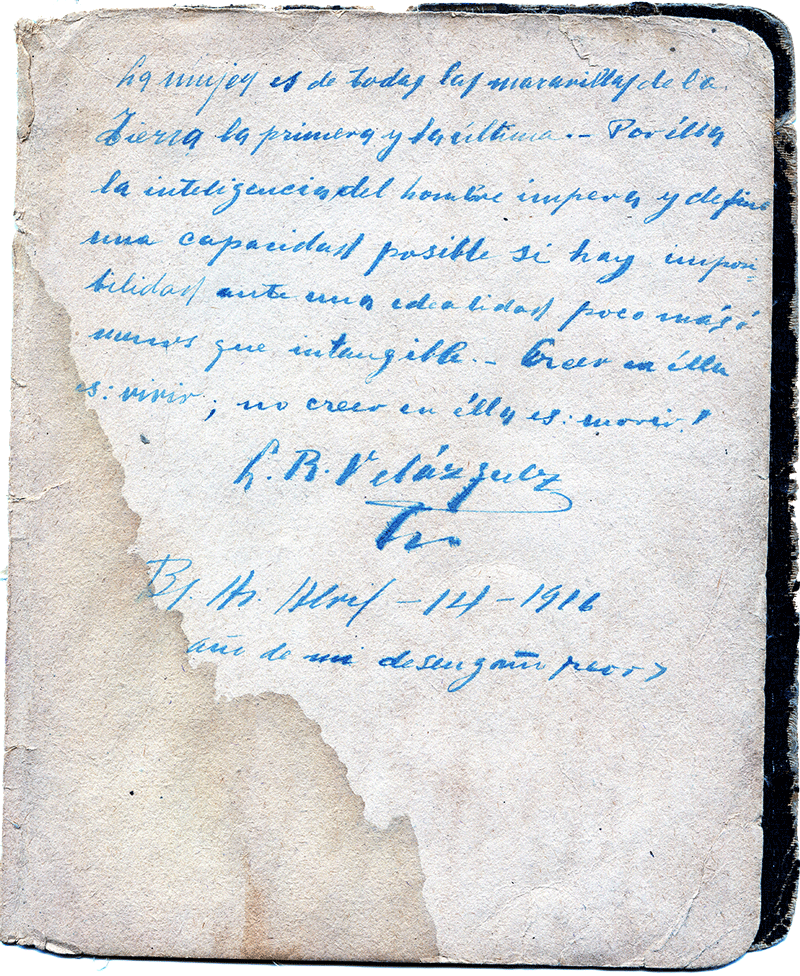 La mujer es de todas las maravillas de la
Tierra la primera y la última.- Por élla
la inteligencia del hombre impera y define
una capacidad posible si hay imposi-
bilidad ante una idealidad poco más ó
menos que intangible.- Creer en élla
es: vivir; no creer en élla es: morir!
L. R. Velázquez
Bs. As. Abril-14-1916
año de mi desengaño peor